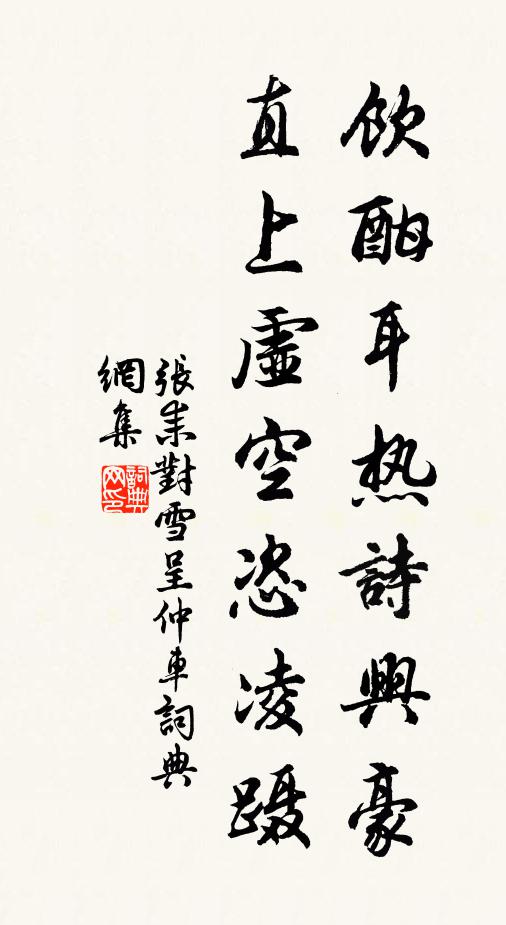 飲酣耳热詩興豪
直上虛空恣凌蹑
張耒對雪呈仲車詞典
網集
詞典
网印